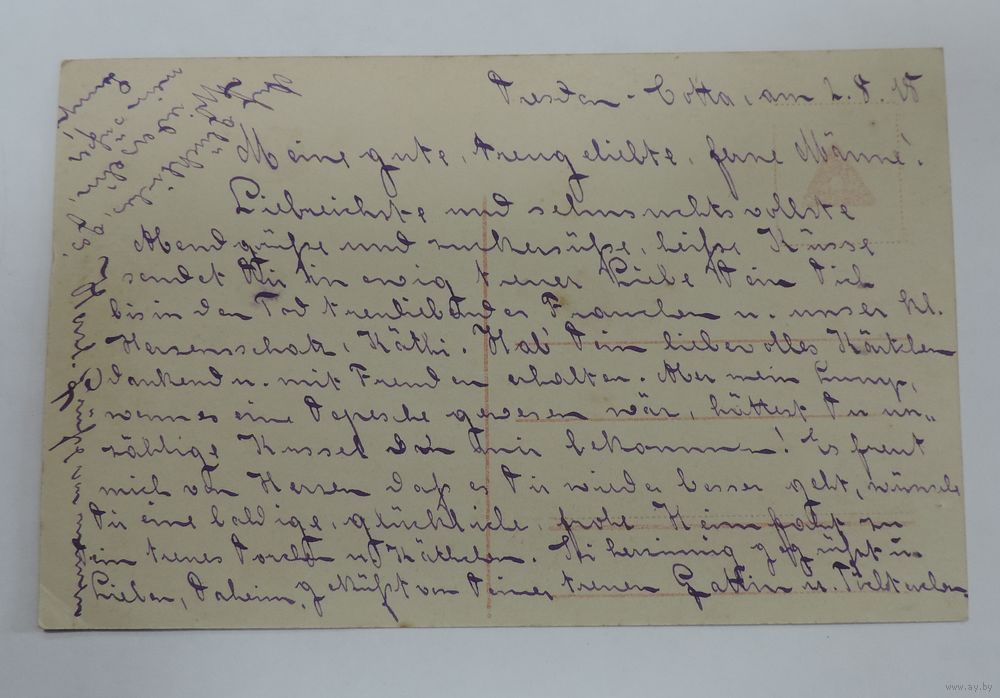 Dresden - Cotta, am 2.8.15
Meine gute, treugeliebte, ferne Männe!
Liebreichste und sehnsuchtsvollste
Abendgrüße und zuckersüße, heiße Küsse
sendet Dir in ewig treuer Liebe Dein Dich
bis in den Tod treuliebendes Frauchen u. unser kl.
Herzensschatz, Käthi. Hab Dein liebevolles Kärtchen
dankend u. mit Freuden erhalten. Aber mein Lump,
wenn es eine Depesche gewesen wär, hättest Du un„
zählige Küssel von mir bekommen! Es freut
mich von Herzen daß es Dir wieder besser geht, wünsche
Dir eine baldige, glückliche, frohe Heimfahrt zu
ein treues Dorchen u Käthchen. Sei herzinnig gegrüßt u.
Lieben, Daheim, geküßt von Deiner treuen Gattin u. Töchterchen.
Auf
glückliches
Wiedersehn
mein
www.ay.by